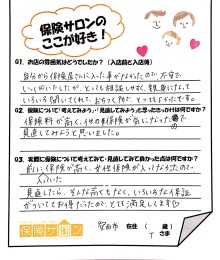 保険サロンの
ここが好き！
Q1. お店の雰囲気はどうでしたか？（入店前と入店後）
自分から保険屋さんに入った事がなかったので、不安で
いっぱいでしたが、とっても相談しやすく、親身になって
いろいろ聞いてくれて、おちついて、とってもよかったです。
Q2. 保険について「考えてみよう」・「見直してみよう」と思ったきっかけは何ですか？
保険料が高く、他の車保険が気になったので
見直してみようと思いました。
Q3. 実際に保険について考えてみて・見直してみて良かった点は何ですか？
前に保険が高く、女性保険が入ってなかったので
入った
見直したら、そんな高くもなく、いろいろな保証
がついてとお得だったので、とても満足してます
保険サロン
市 在住 （ 歳）
T さま